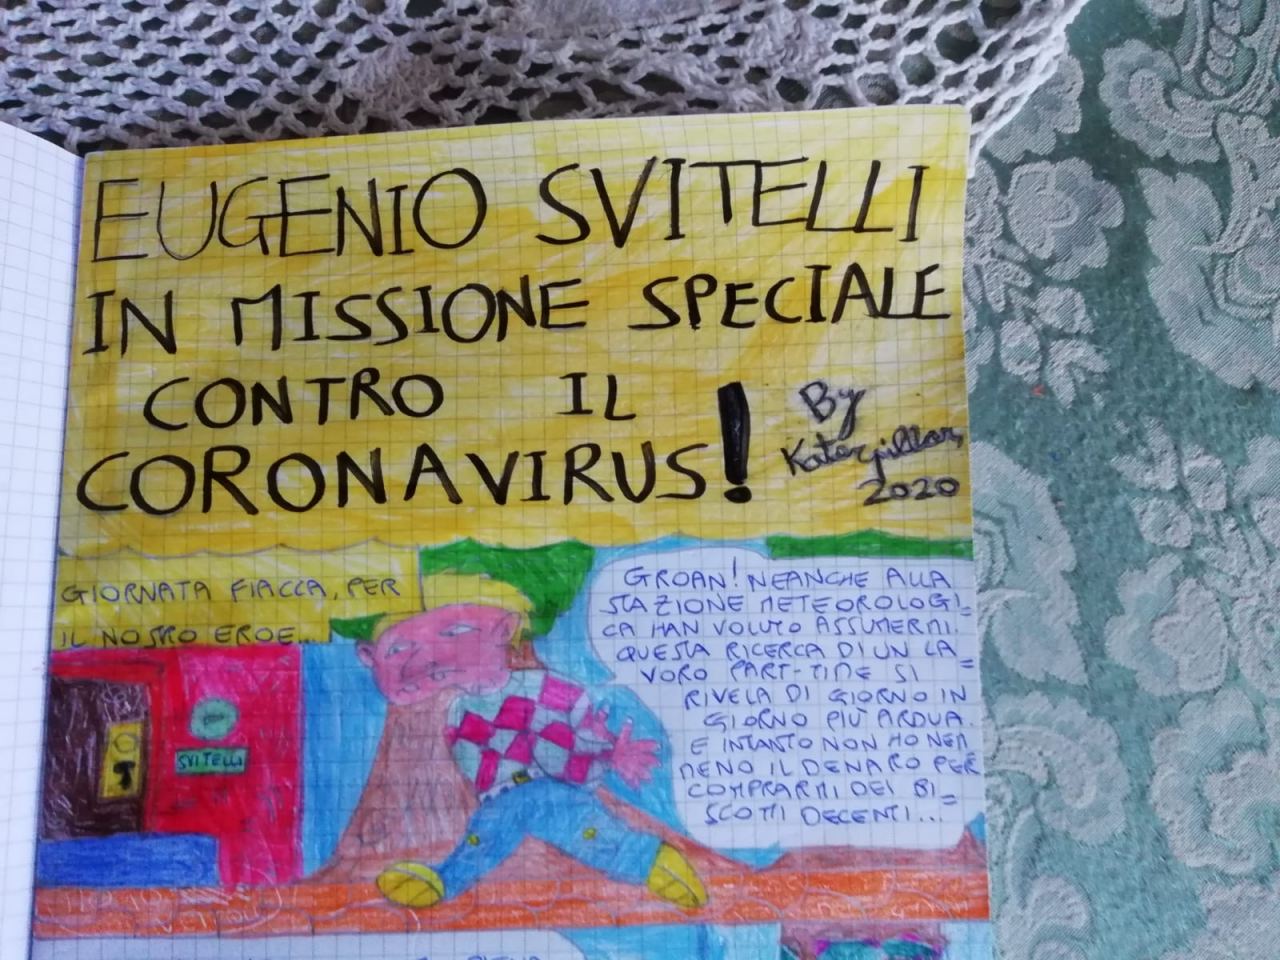 EUGENIO SVITELLI
IN MISSIONE SPECIALE
CONTRO IL
CORONAVIRUS!
By
Katerpillar,
2020
GIORNATA FIACCA, PER
IL NOSTRO EROE...
SVITELLI
GROAN! NEANCHE ALLA
STAZIONE METEOROLOGI=
CA HAN VOLUTO ASSUMERMI.
QUESTA RICERCA DI UN LA=
VORO PART-TIME SI
RIVELA DI GIORNO IN
GIORNO PIÙ ARDUA.
E INTANTO NON HO NEM
MENO IL DENARO PER
COMPRARMI DEI BI=
SCOTTI DECENTI...